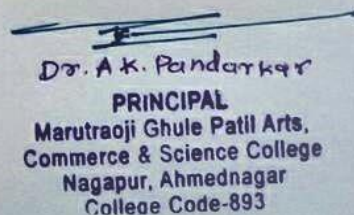 Dr. A K. Pandarkar
PRINCIPAL
Marutraoji Ghule Patil Arts,
Commerce & Science College
Nagapur, Ahmednagar
College Code-893